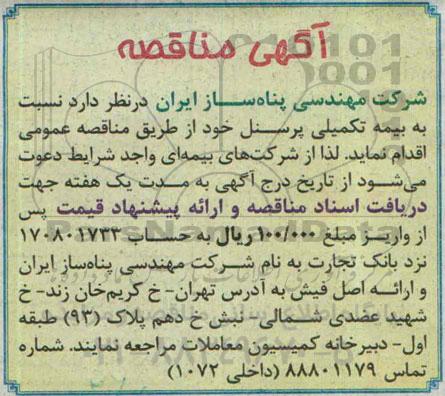 آگهی مناقصه
شرکت مهندسی پناه‌ساز ایران درنظر دارد نسبت
به بیمه تکمیلی پرسنل خود از طریق مناقصه عمومی
اقدام نماید. لذا از شرکت‌های بیمه‌ای واجد شرایط دعوت
می‌شود از تاریخ درج آگهی به مدت یک هفته جهت
دریافت اسناد مناقصه و ارائه پیشنهاد قیمت پس
از واریز مبلغ ۱۰۰/۰۰۰ ریال به حساب ۱۷۰۸۰۱۷۳۳
نزد بانک تجارت به نام شرکت مهندسی پناه‌ساز ایران
و ارائه اصل فیش به آدرس تهران- خ کریم‌خان زند- خ
شهید عضدی شمالی- نبش خ دهم پلاک (۹۳) طبقه
اول- دبیرخانه کمیسیون معاملات مراجعه نمایند. شماره
تماس ۸۸۸۰۱۱۷۹ (داخلی ۱۰۷۲)